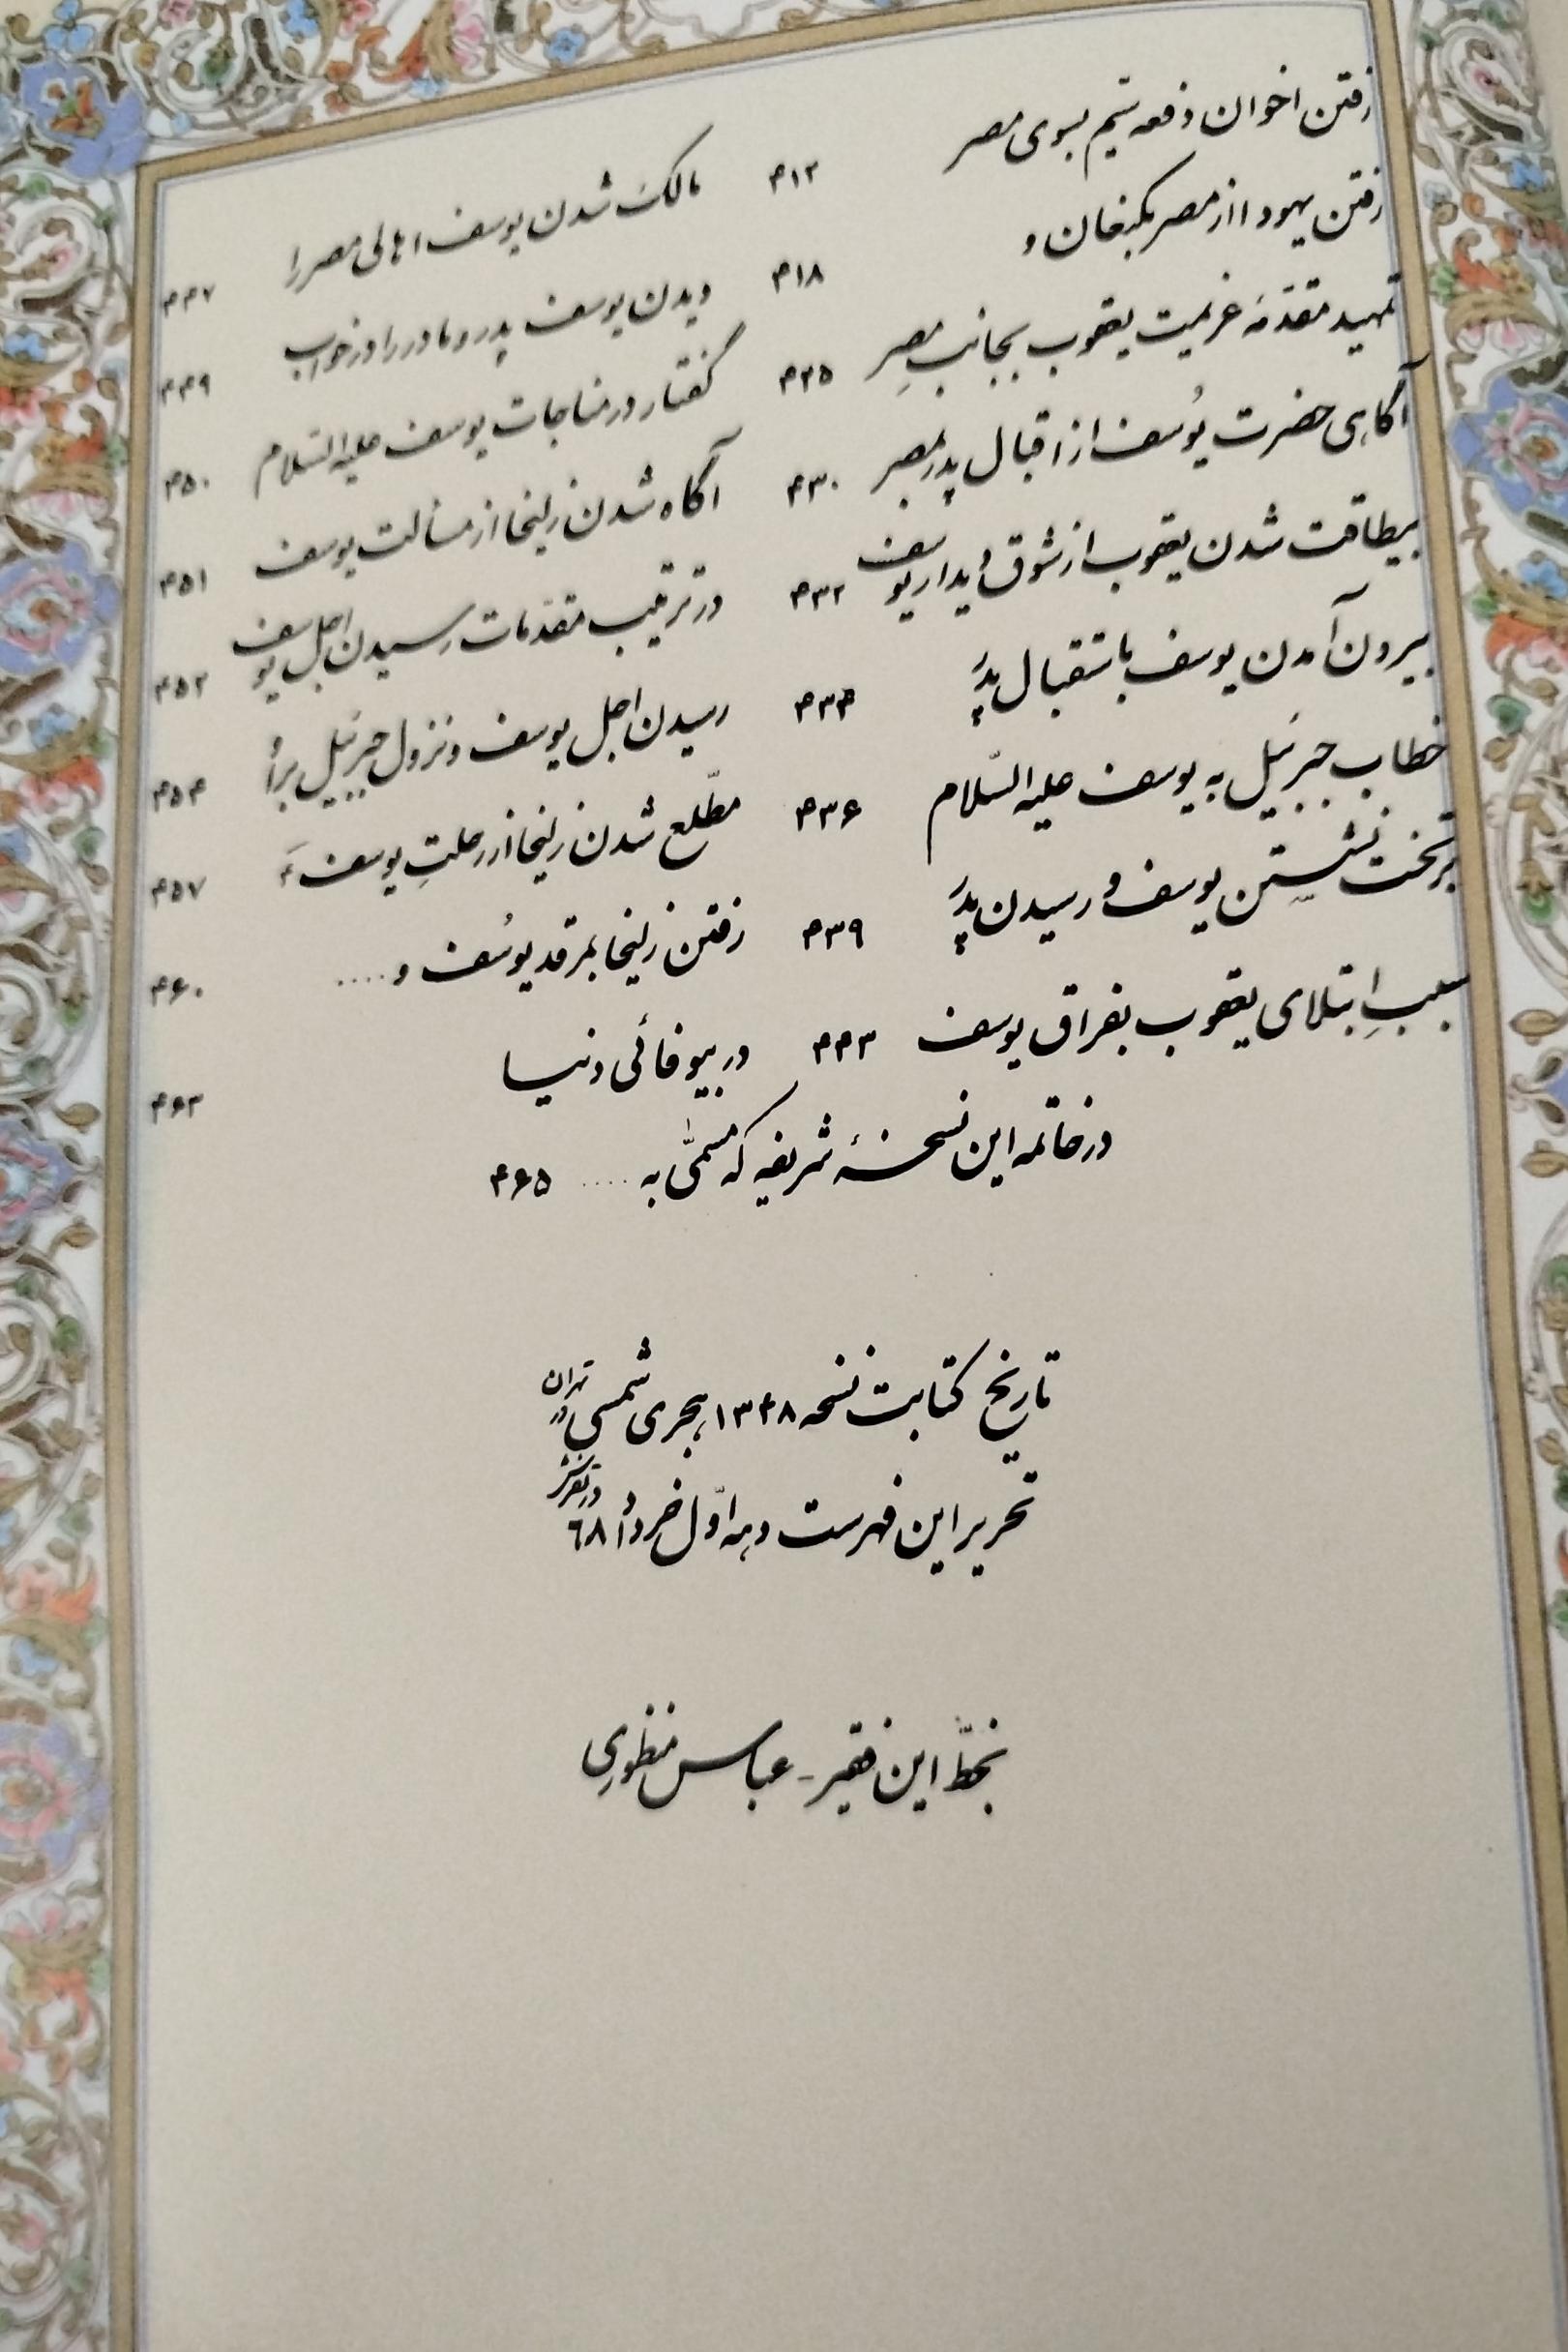 رفتن اخوان دفعه سیم بسوی مصر ۴۱۲
رفتن یهودا از مصر بکنعان و ۴۱۸
تمهید مقدّمه عزیمت یعقوب بجانب مصرِ ۴۲۵
آگاهی حضرت یُوسف از اقبال پدر بمصر ۴۳۰
بیطاقت شدن یعقوب از شوق دیدار یوسف ۴۳۲
بیرون آمدن یوسف باستقبال پدَر ۴۳۴
خطاب جبرئیل به یوسف علیه السّلام ۴۳۶
بر تخت نشستن یوسف و رسیدن پدَر ۴۳۹
سببِ ابتلای یعقوب بفراق یوسف ۴۴۳
مالک شدن یوسف اهالی مصر را ۴۴۷
دیدن یوسف پدر و مادر را در خواب ۴۴۹
گفتار در مناجات یوسف علیه السّلام ۴۵۰
آگاه شدن زلیخا از مسألت یوسف ۴۵۱
در ترتیب مقدّمات رسیدن اجل یوسف ۴۵۲
رسیدن اجل یوسف و نزول جبرئیل برأ ۴۵۴
مطّلع شدن زلیخا از رحلتِ یوسف ۴۵۷
رفتن زلیخا بمرقد یوسُف و .... ۴۶۰
در بیوفائی دنیا ۴۶۳
در خاتمه این نسخهٔ شریفه که مسمّی به .... ۴۶۵
تاریخ کتابت نسخه ۱۳۴۸ هجری شمسی در تهران
تحریر این فهرست دهه اوّل خرداد ۶۸ در تفرش
بخطّ این فقیر - عباس منظوری